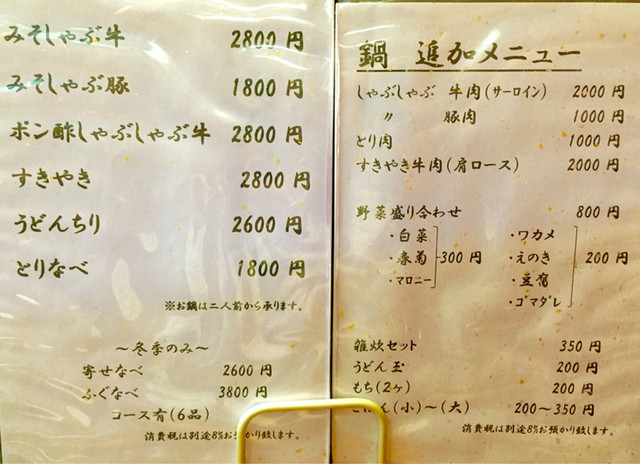 みそしゃぶ牛 2800円
みそしゃぶ豚 1800円
ポン酢しゃぶしゃぶ牛 2800円
すきやき 2800円
うどんちり 2600円
とりなべ 1800円
※お鍋は二人前から承ります。
～冬季のみ～
寄せなべ 2600円
ふぐなべ 3800円
コース有(6品)
消費税は別途8%お預かり致します。
鍋 追加メニュー
しゃぶしゃぶ 牛肉(サーロイン) 2000円
〃 豚肉 1000円
とり肉 1000円
すきやき牛肉(肩ロース) 2000円
野菜盛り合わせ 800円
・白菜
・春菊 300円
・マロニー
・ワカメ
・えのき 200円
・豆腐
・ゴマダレ
雑炊セット 350円
うどん玉 200円
もち(2ヶ) 200円
ごはん(小)～(大) 200～350円
消費税は別途8%お預かり致します。